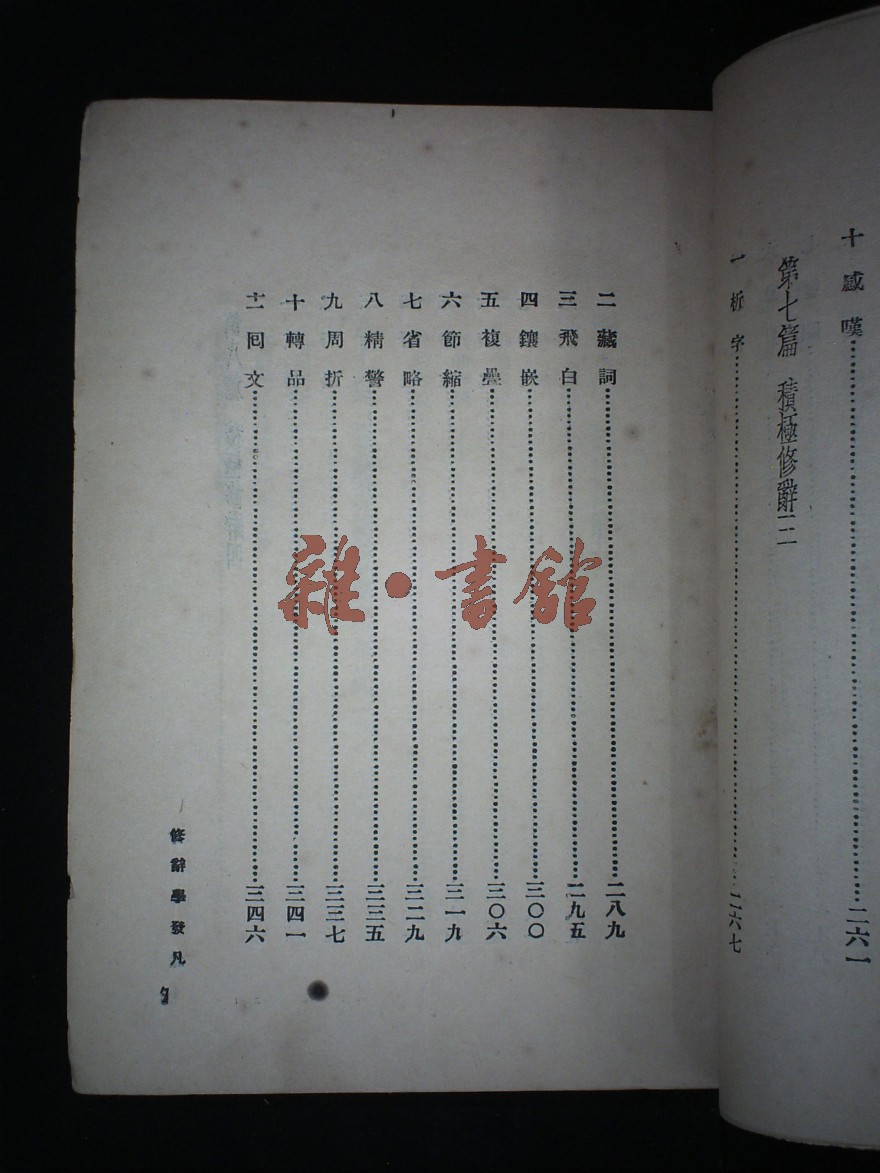 十 感嘆……二六一
第七篇 積極修辭三
一 析字……二六七
二 藏詞……二八九
三 飛白……二九五
四 鑲嵌……三〇〇
五 複疊……三〇六
六 節縮……三一九
七 省略……三二九
八 精警……三三五
九 周折……三三七
十 轉品……三四一
十一 回文……三四六
修辭學發凡
雜·書館